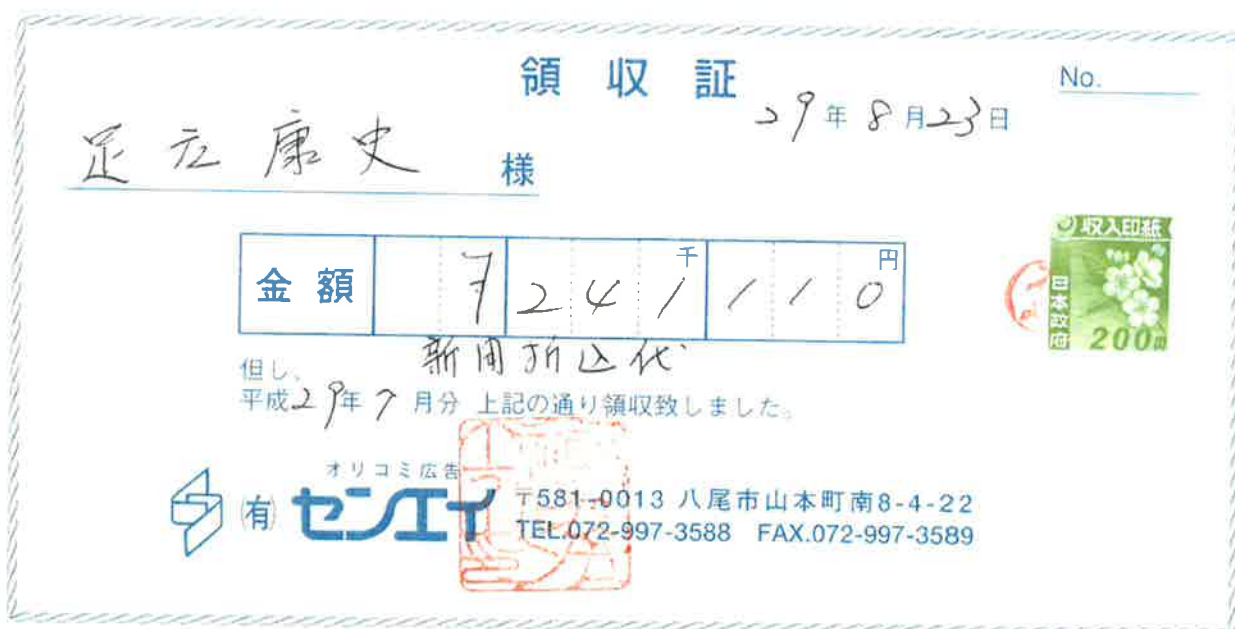 領収証
No.
29年8月23日
足立康史 様
金額 ￥241,110
千 円
収入印紙
日本政府
200円
新聞折込代
但し、
平成29年7月分 上記の通り領収致しました。
オリコミ広告
(有) センエイ
〒581-0013 八尾市山本町南8-4-22
TEL.072-997-3588 FAX.072-997-3589